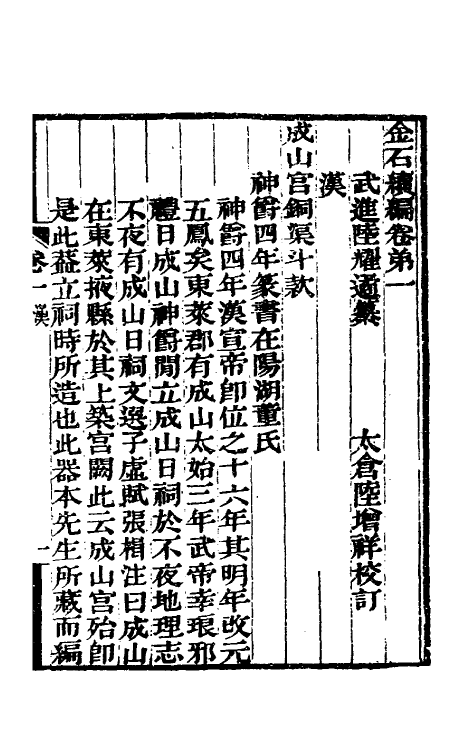 金石續編卷第一
武進陸耀遹纂　太倉陸增祥校訂
漢
成山宮銅渠斗款
神爵四年篆書在陽湖董氏
神爵四年漢宣帝卽位之十六年其明年改元
五鳳矣東萊郡有成山太始三年武帝幸琅邪
禮日成山神爵閒立成山日祠於不夜地理志
不夜有成山日祠文選子虛賦張楫注曰成山
在東萊掖縣於其上築宮闕此云成山宮殆卽
是此葢立祠時所造也此器本先生所藏而編
卷一　漢　一